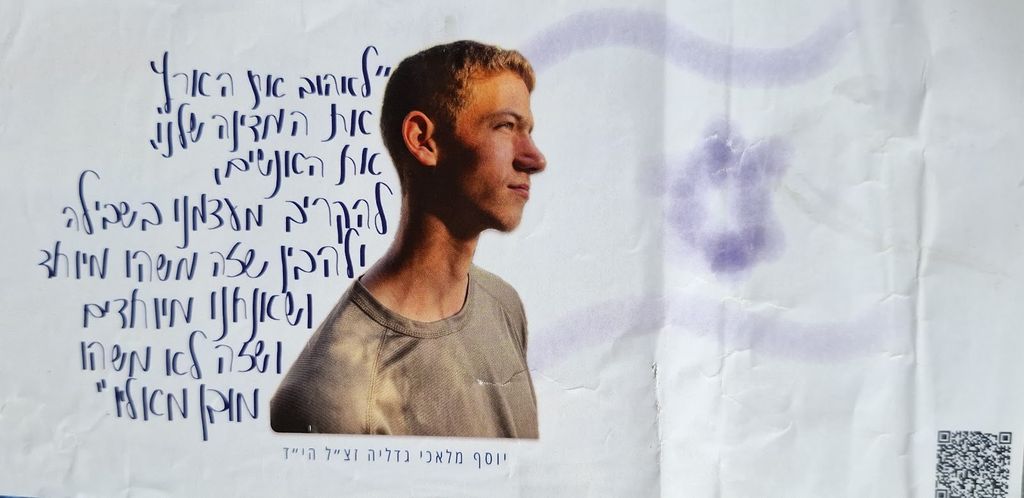 "לאהוב את הארץ
את המדינה שלנו,
את האנשים,
להקריב מעצמנו בשבילה
ולהבין שזה משהו מיוחד
ושאנחנו מיוחדים
ושזה לא משהו
מובן מאליו"
יוסף מלאכי גדליה זצ"ל הי"ד